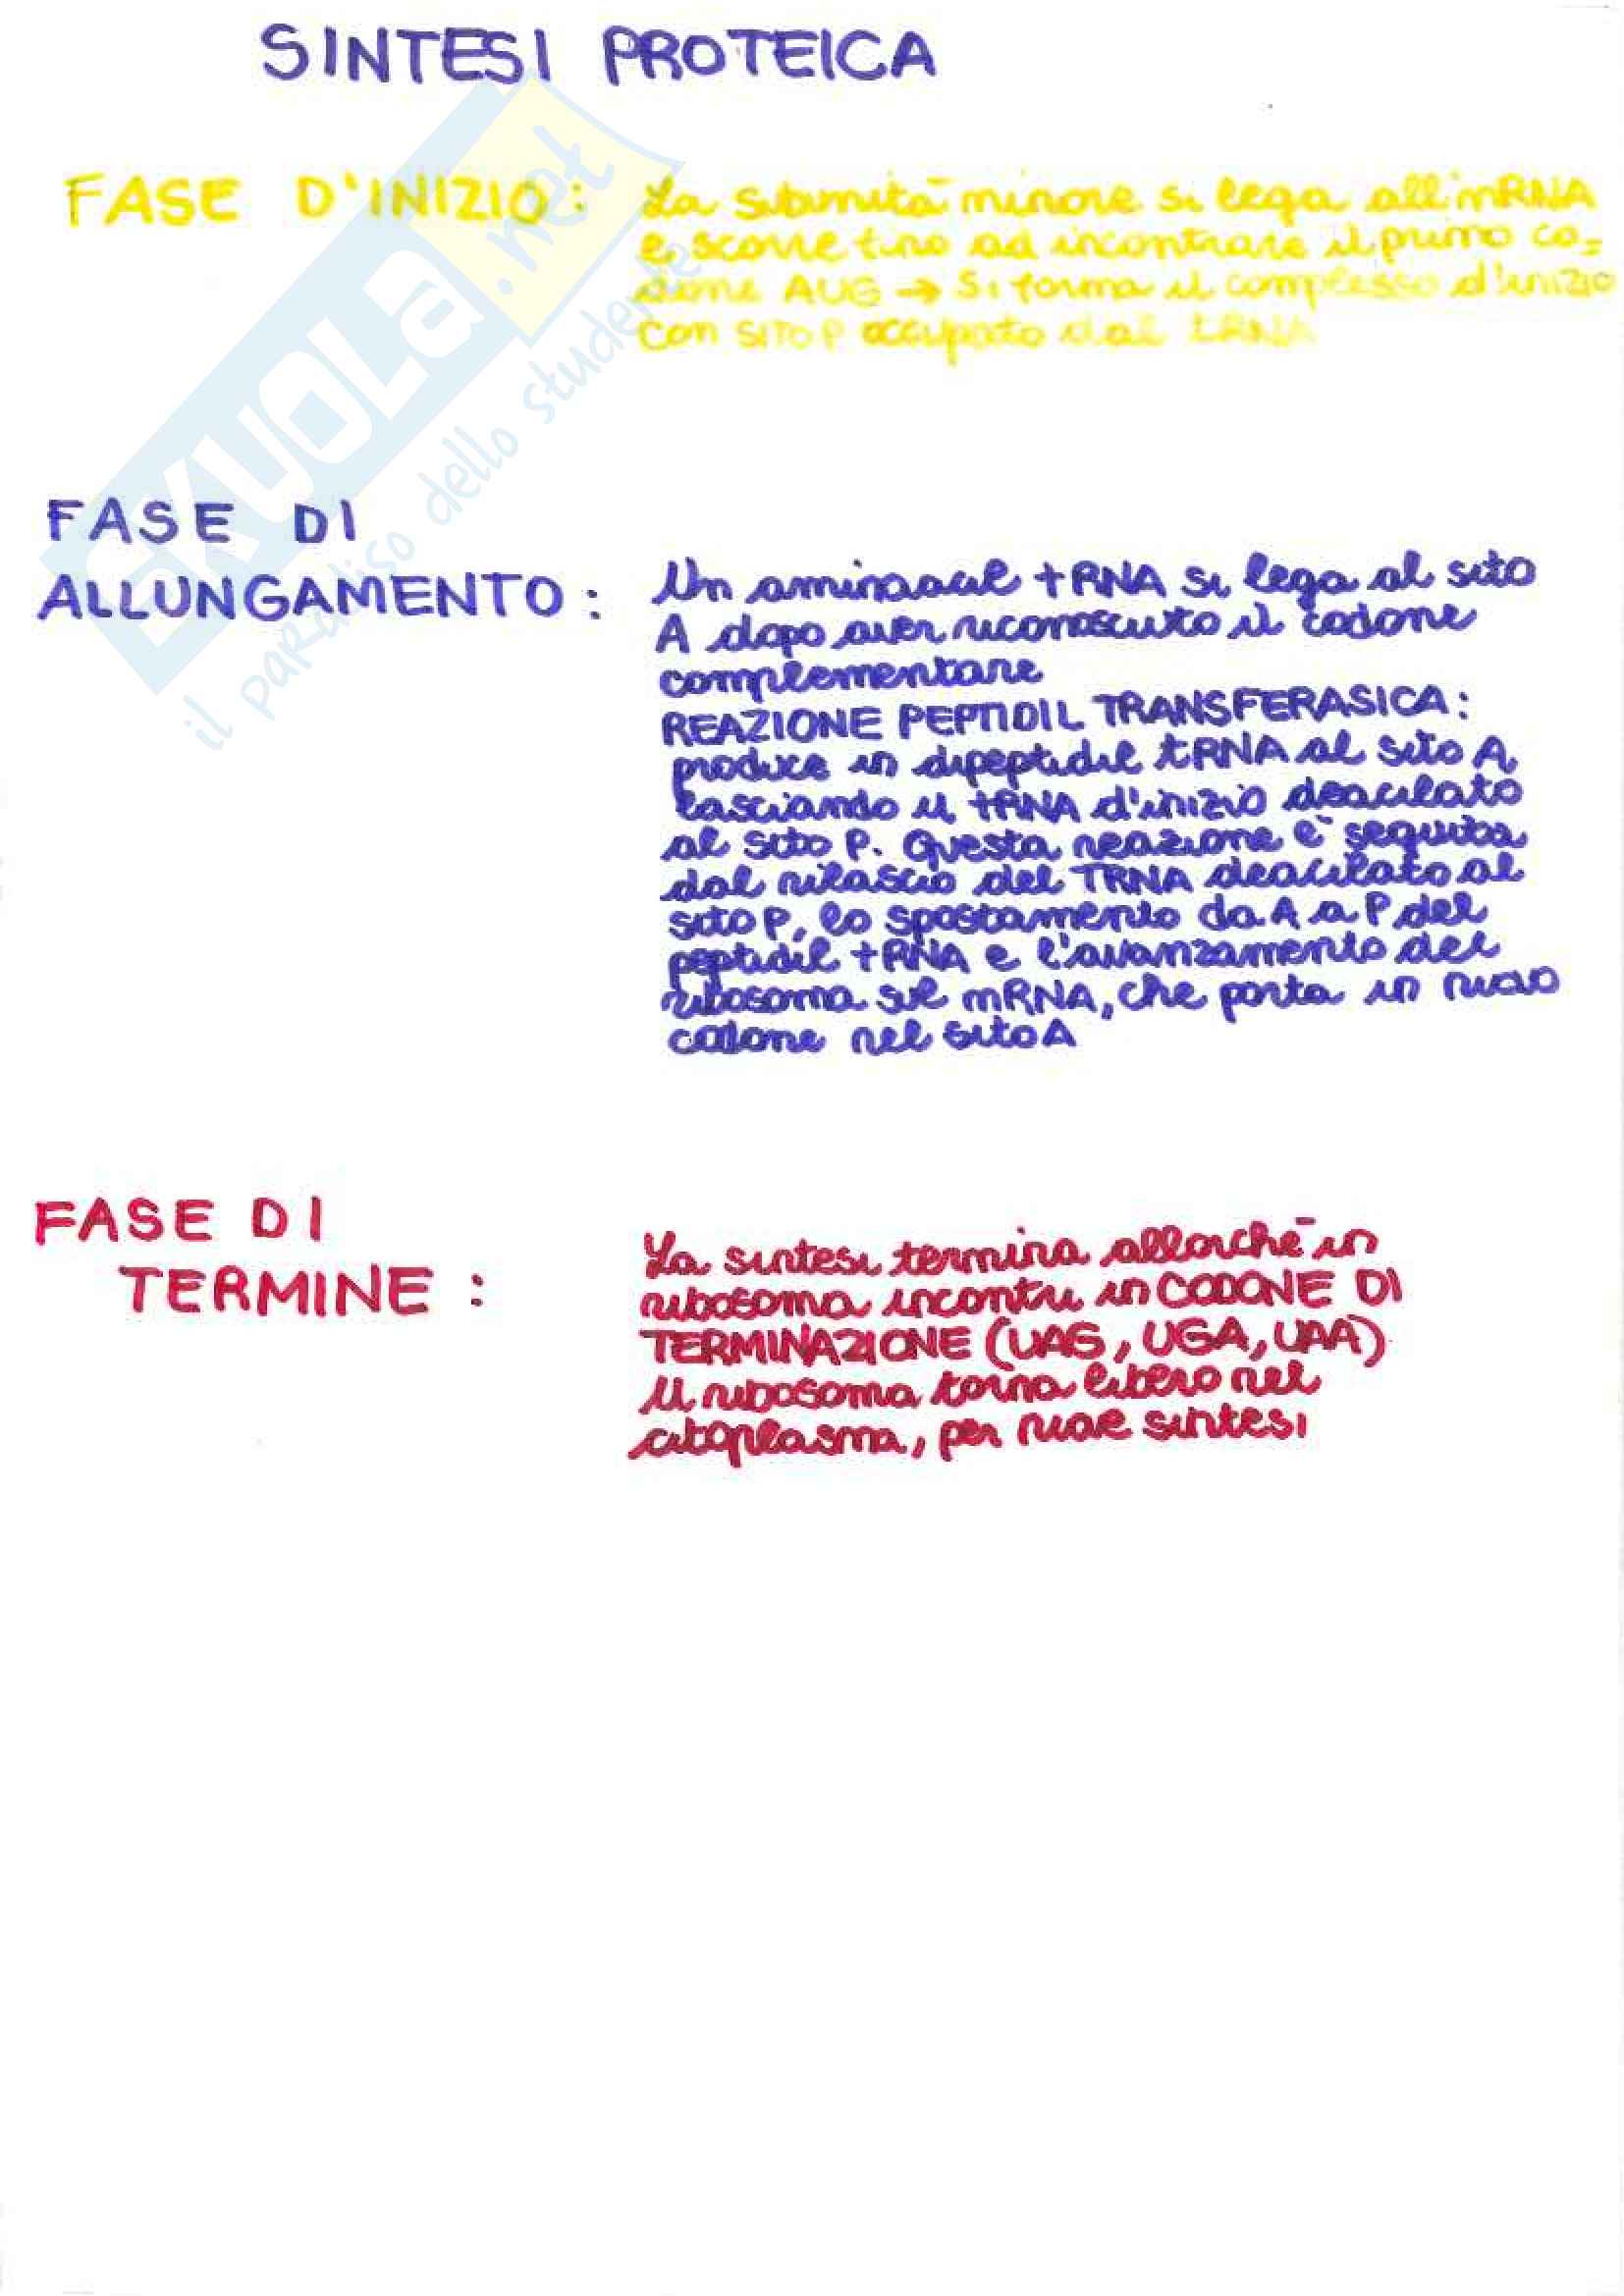 SINTESI PROTEICA
FASE D'INIZIO:
La subunità minore si lega all'mRNA
e scorre fino ad incontrare il primo co=
done AUG → Si forma il complesso d'inizio
con SITO P occupato dal tRNA
SKUOLA.net
il paradiso dello studente
FASE DI
ALLUNGAMENTO:
Un aminoacil tRNA si lega al sito
A dopo aver riconosciuto il codone
complementare
REAZIONE PEPTIDIL TRANSFERASICA:
produce un dipeptidil tRNA al sito A,
lasciando il tRNA d'inizio deacilato
al sito P. Questa reazione è seguita
dal rilascio del TRNA deacilato al
sito P, lo spostamento da A a P del
peptidil tRNA e l'avanzamento del
ribosoma sul mRNA, che porta un nuovo
codone nel sito A
FASE DI
TERMINE:
La sintesi termina allorchè un
ribosoma incontri un CODONE DI
TERMINAZIONE (UAG, UGA, UAA)
Il ribosoma torna libero nel
citoplasma, per nuove sintesi